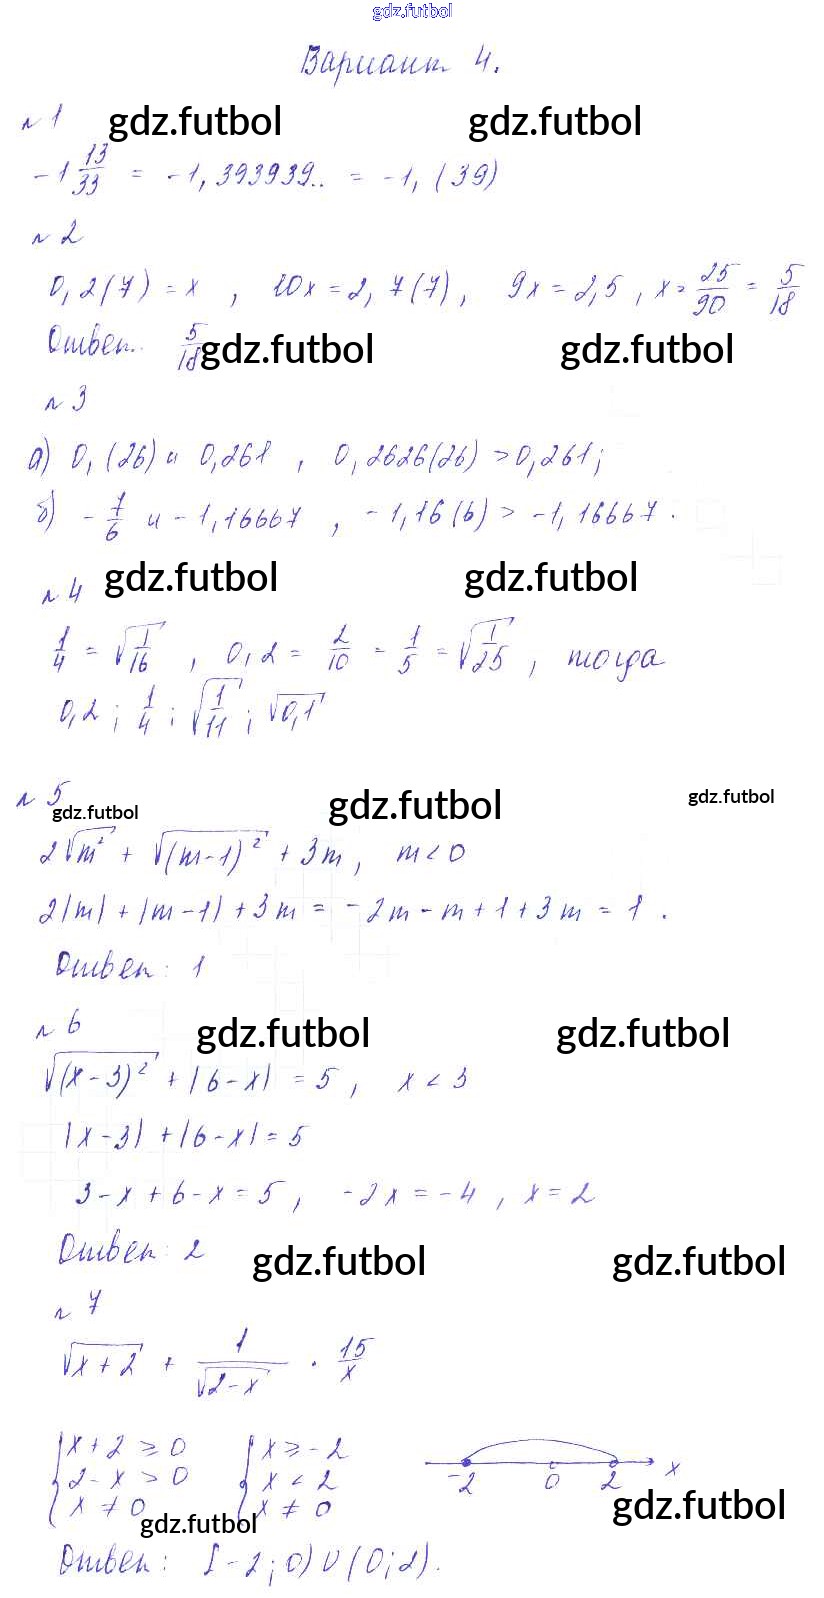 gdz.futbol
Вариант 4.
№ 1 gdz.futbol gdz.futbol
-1 13/33 = -1,393939.. = -1,(39)
№ 2
0,2(7) = x , 10x = 2,7(7), 9x = 2,5 , x = 25/90 = 5/18
Ответ: 5/18 gdz.futbol gdz.futbol
№ 3
а) 0,(26) и 0,261 , 0,2626(26) > 0,261;
б) -7/6 и -1,16667 , -1,16(6) > -1,16667.
№ 4 gdz.futbol gdz.futbol
1/4 = √(1/16) , 0,2 = 2/10 = 1/5 = √(1/25) , тогда
0,2 ; 1/4 ; √(1/11) ; √0,1
№ 5 gdz.futbol gdz.futbol gdz.futbol
2√m² + √(m-1)² + 3m , m < 0
2|m| + |m-1| + 3m = -2m - m + 1 + 3m = 1 .
Ответ: 1
№ 6 gdz.futbol gdz.futbol
√(x-3)² + |6-x| = 5 , x < 3
|x-3| + |6-x| = 5
3 - x + 6 - x = 5 , -2x = -4 , x = 2
Ответ: 2 gdz.futbol gdz.futbol
№ 7
√x+2 + 1/√2-x · 15/x
{ x+2 ≥ 0 { x ≥ -2
2-x > 0 x < 2 -2 0 2 x
x ≠ 0 x ≠ 0 gdz.futbol
gdz.futbol
Ответ: [-2;0)∪(0;2).